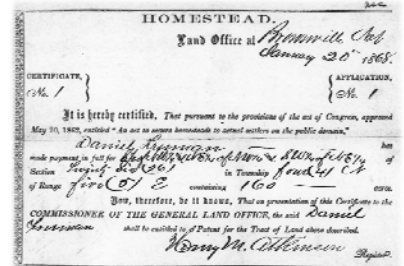 HOMESTEAD.
Land Office at Brownville Neb
January 20th 1868.
CERTIFICATE, No. 1
APPLICATION, No. 1
It is hereby certified, That pursuant to the provisions of the act of Congress, approved
May 20, 1862, entitled "An act to secure homesteads to actual settlers on the public domain,"
Daniel Freeman has
made payment in full for of
Section Twenty six (26) in Township four (4) N
of Range five (5) E containing 160 acres.
Now, therefore, be it known, That on presentation of this Certificate to the
COMMISSIONER OF THE GENERAL LAND OFFICE, the said Daniel
Freeman shall be entitled to a Patent for the Tract of Land above described.
Henry M. Atkinson
Register.